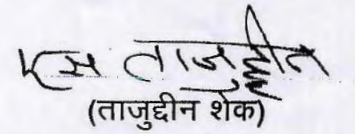 एस ताजुद्दीन
(ताजुद्दीन शेक)